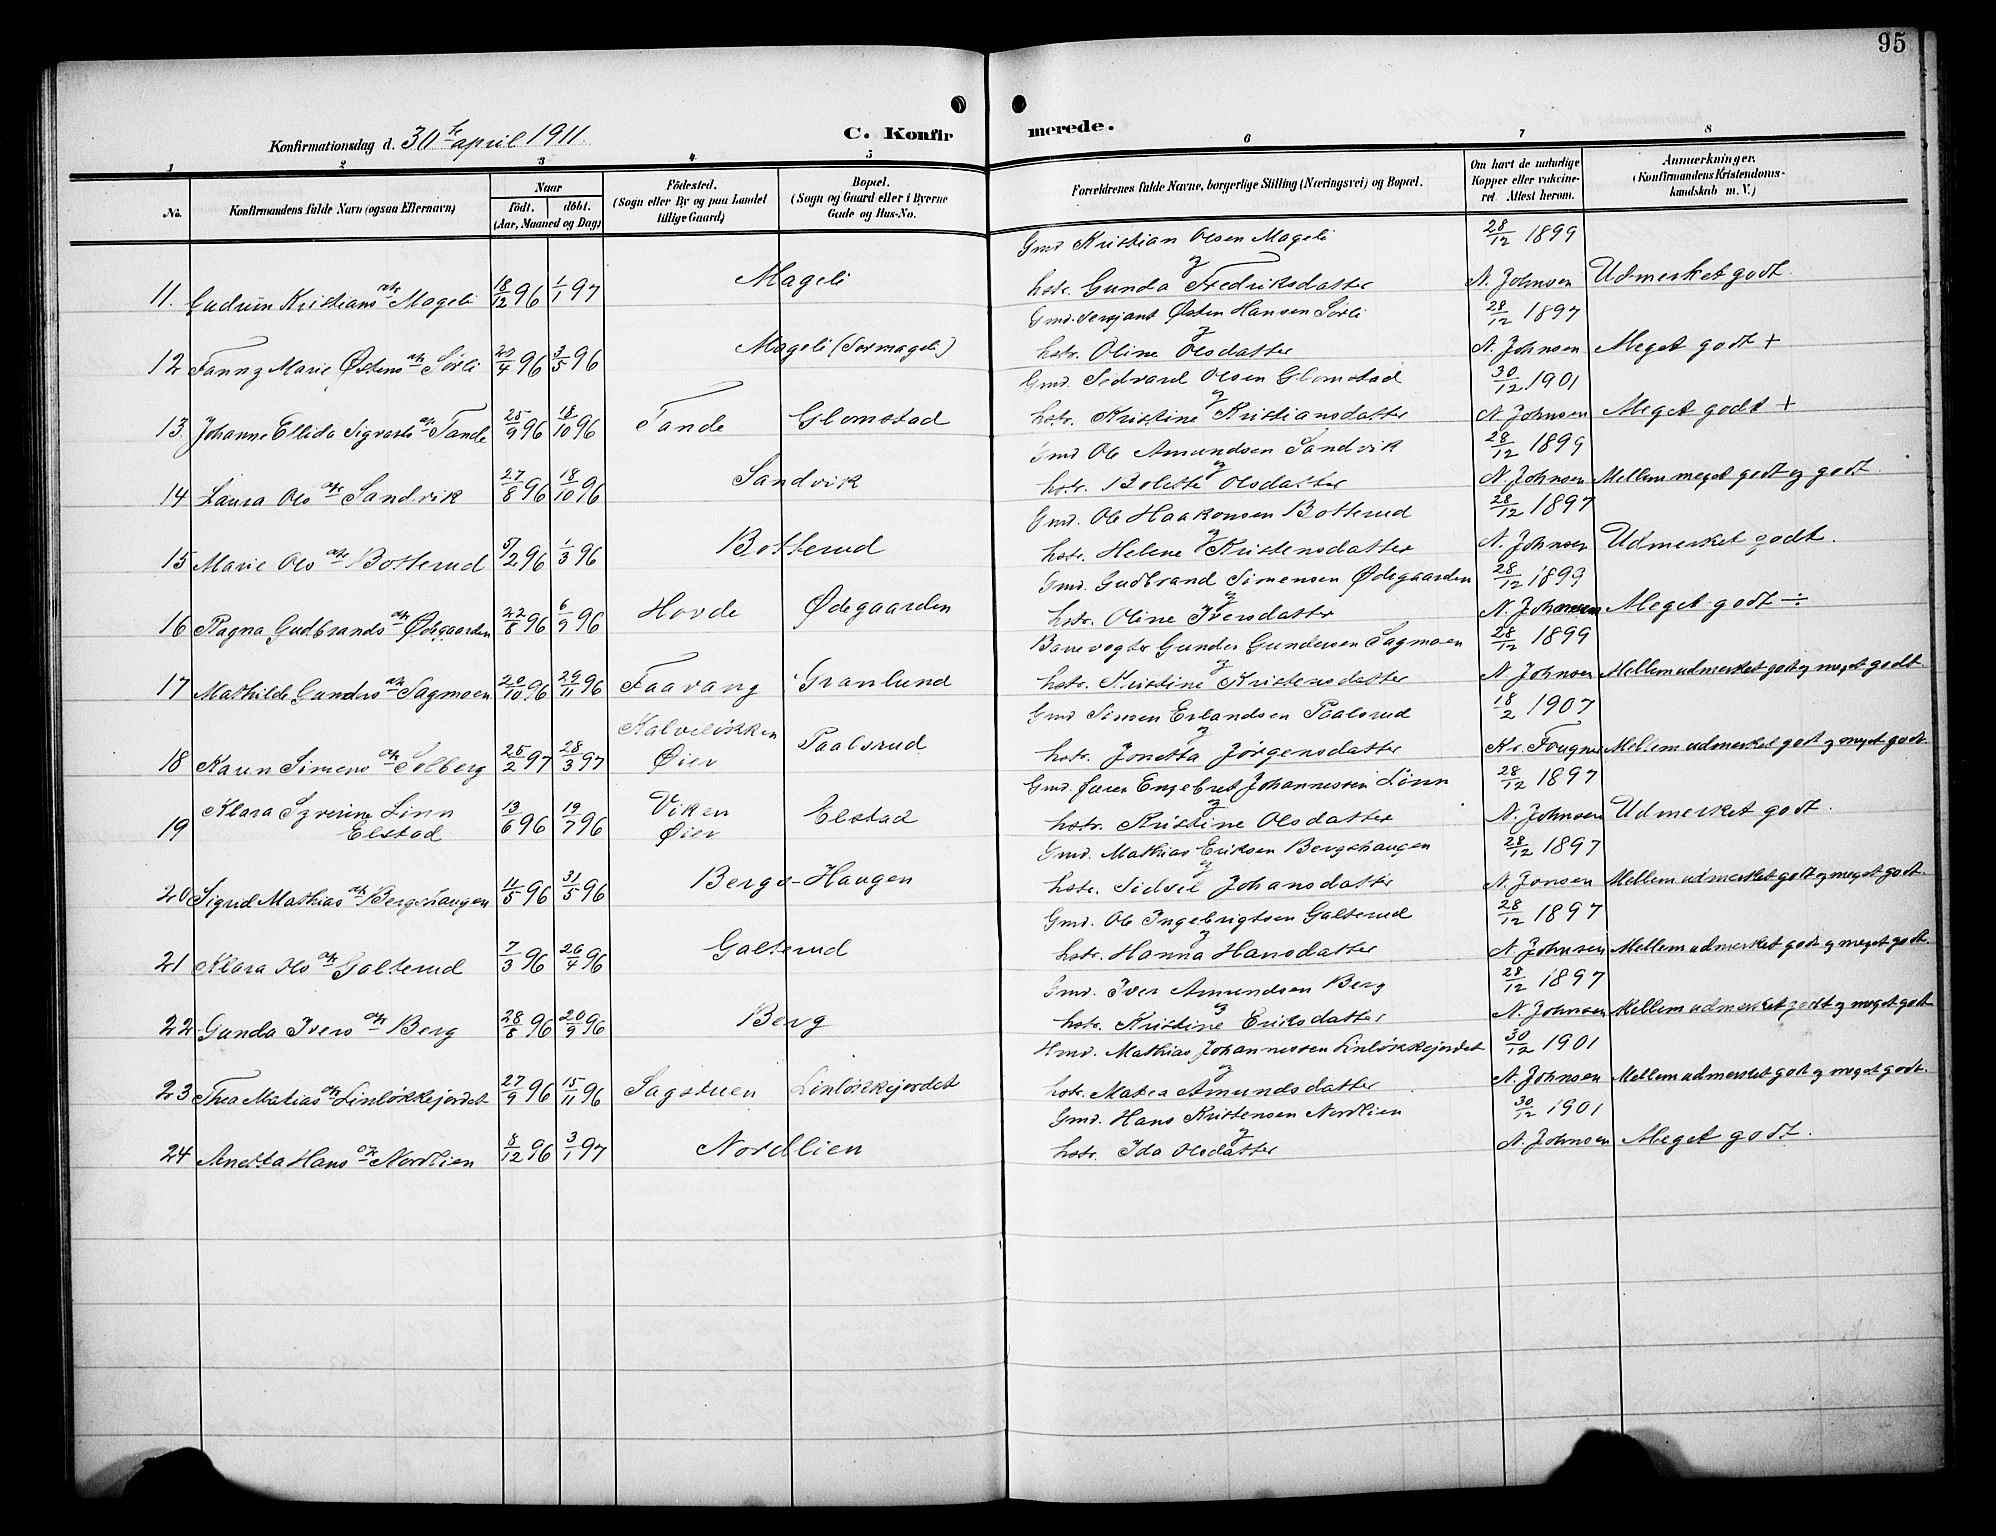 95
Konfirmationsdag d. 30te april 1911.
C. Konfirmerede.
1 2 3 4 5 6 7 8
No.
Konfirmandens fulde Navn (ogsaa Efternavn)
Naar
födt. döbt.
(Aar, Maaned og Dag)
Födested.
(Sogn eller By og paa Landet
tillige Gaard)
Bopæl.
(Sogn og Gaard eller i Byerne
Gade og Hus-No.
Forældrenes fulde Navne, borgerlige Stilling (Næringsvei) og Bopæl.
Om havt de naturlige
Kopper eller vakcine-
ret. Attest herom.
Anmerkninger.
(Konfirmandens Kristendoms-
kundskab m. V.)
Gmd Kristian Olsen Mageli 28/12 1899
11. Gudrun Kristians dtr Mageli 18/12 96 1/1 97 Mageli og hstr. Gunda Fredriksdatter N. Johnsen Udmerket godt.
Gmd. Sersjant Østen Hansen Sörli 28/12 1897
12 Fanny Marie Østens dtr Sörli 27/4 96 3/5 96 Mageli (Sormageli) og hstr. Oline Olsdatter N. Johnsen Meget godt +
Gmd. Sedvard Olsen Glomstad 30/12 1901
13. Johanne Ellida Sigvarts dtr Tande 25/9 96 18/10 96 Tande Glomstad og hstr. Kristine Kristiansdatter N. Johnsen Meget godt +
Gmd Ole Amundsen Sandvik 28/12 1899
14 Laura Ols dtr Sandvik 27/8 96 18/10 96 Sandvik og hstr. Bolette Olsdatter N. Johnsen Mellem meget godt og godt.
Gmd. Ole Haakonsen Botterud 28/12 1897
15 Marie Ols dtr Botterud 5/2 96 1/3 96 Botterud og hstr. Helene Kristensdatter N. Johnsen Udmerket godt.
Gmd. Gudbrand Simensen Ødegaarden 28/12 1899
16 Ragna Gudbrands dtr Ødegaarden 22/8 96 6/9 96 Hovde Ødegaarden og hstr. Oline Iversdatter N. Johnsen Meget godt ÷
Banevogter Gunder Gundersen Sagmoen 28/12 1899
17 Mathilde Gunders dtr Sagmoen 20/10 96 29/11 96 Faavang Granlund og hstr. Kristine Kristensdatter N. Johnsen Mellem udmerket godt og meget godt
Gmd Simen Erlandsen Paalsrud 18/2 1907
Kalveløkken
18 Karen Simens dtr Solberg 25/2 97 28/3 97 Øier Paalsrud og hstr. Jonetta Jørgensdatter Kr. Fougner Mellem udmerket godt og meget godt.
Gmd. Engebret Johannessen Linn 28/12 1897
19 Klara Syverine Linn 13/6 96 19/7 96 Viken Elstad og hstr. Kristine Olsdatter N. Johnsen Udmerket godt.
Elstad Øier
Gmd. Mathias Eriksen Bergshaugen 28/12 1897
20 Sigrid Mathias dtr Bergshaugen 4/5 96 31/5 96 Bergs-Haugen og hstr. Sidsel Johansdatter N. Jonsen Mellem udmerket godt og meget godt.
Gmd. Ole Ingebrigtsen Galterud 28/12 1897
21 Klara Ols dtr Galterud 7/3 96 26/4 96 Galterud og hstr. Hanna Hansdatter N. Johnsen Mellem udmerket godt og meget godt.
Gmd. Iver Amundsen Berg 28/12 1897
22 Gunda Ivers dtr Berg 28/8 96 20/9 96 Berg og hstr. Kristine Eriksdatter N. Johnsen Mellem udmerket godt og meget godt
Hmd. Mathias Johannessen Linløkkejordet 30/12 1901
23 Thea Matias dtr Linløkkejordet 27/9 96 15/11 96 Sagstuen Linløkkejordet og hstr. Matea Amundsdatter N. Johnsen Mellem udmerket godt og meget godt.
Gmd. Hans Kristensen Nordlien 30/12 1901
24 Anetta Hans dtr Nordlien 8/12 96 3/1 97 Nordlien og hstr. Ida Olsdatter N. Johnsen Meget godt.